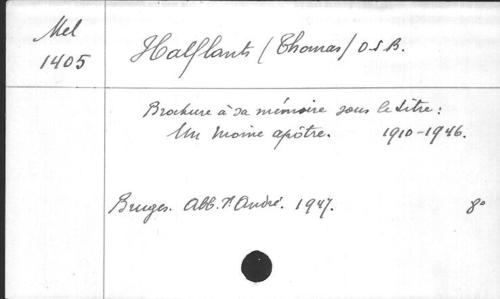 Mel
1405
Halflants (Thomas) O.S.B.
Brochure à sa mémoire sous le titre :
Un moine apôtre. 1910-1946.
Bruges. Abb. St André. 1947. 8°